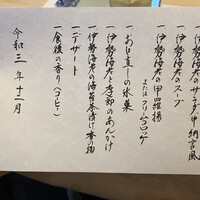 一 伊勢海老のサラダ 中納言風
一 伊勢海老のスープ
一 伊勢海老の甲羅揚
または クリームコロッケ
一 お口直しの氷菓
一 伊勢海老と季節のあんかけ
一 伊勢海老の海苔茶漬け 香の物
一 デザート
一 食後の香り(コーヒー)
令和三年十二月